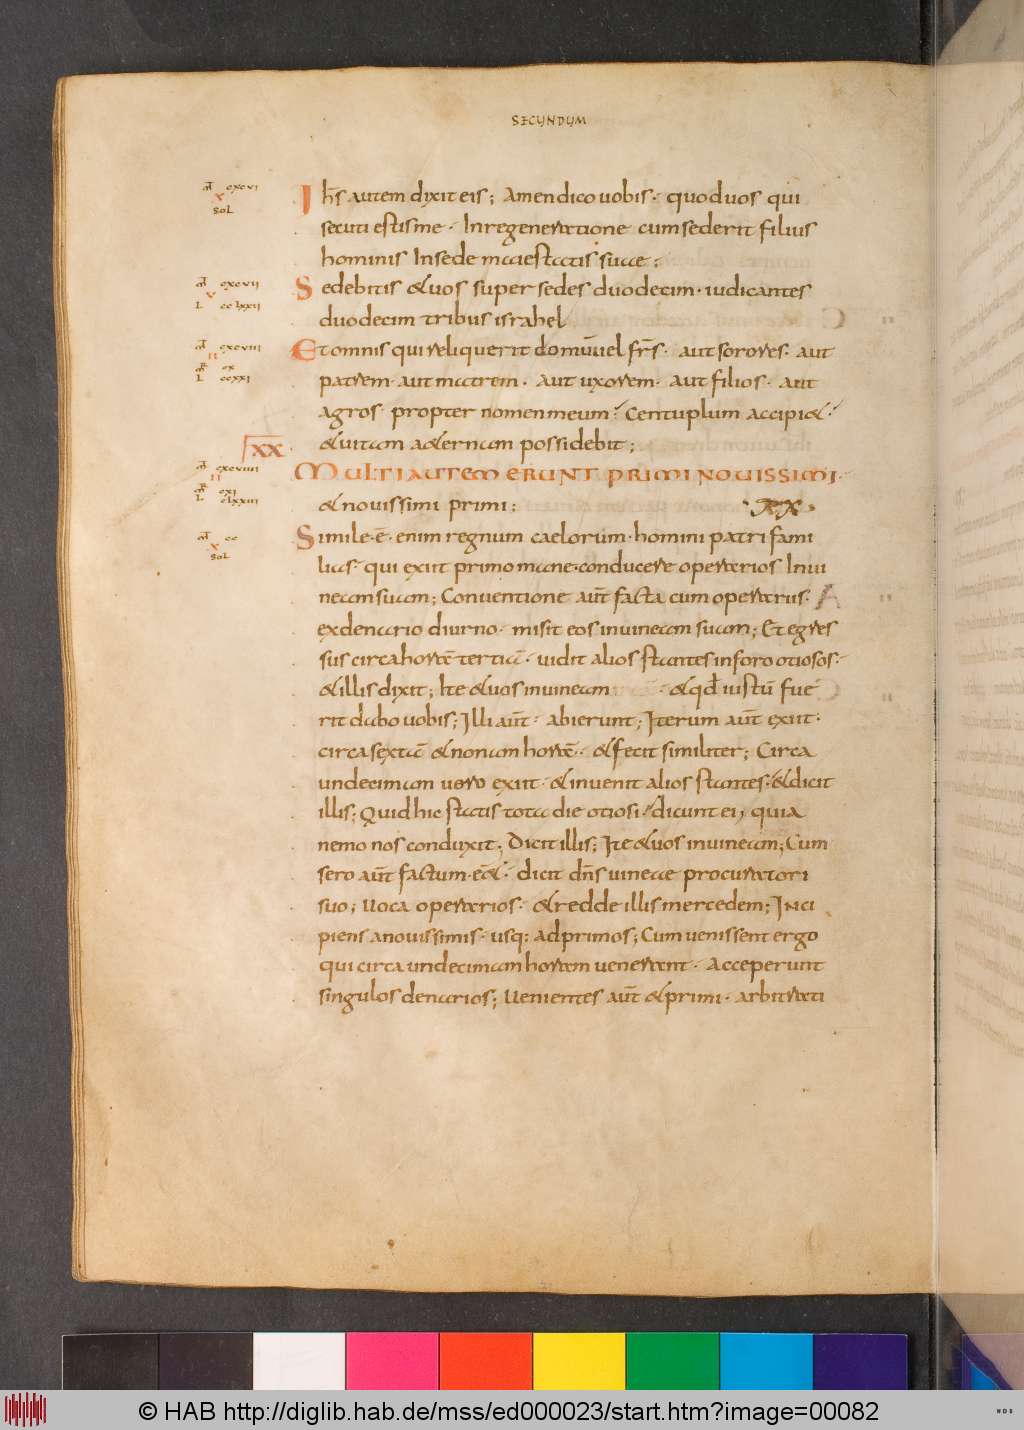 SECUNDUM
mt cxcvi
x
sol
Ihs autem dixit eis; Amen dico uobis· quod uos qui
secuti estis me· In regeneratione cum sederit filius
hominis In sede maiestatis suae;
mt cxcvii
v
L cclxxii
Sedebitis & uos super sedes duodecim· iudicantes
duodecim tribus israhel
mt cxcviii
II
mr cx
L ccxxi
Et omnis qui reliquerit domum uel frs· aut sorores· aut
patrem· aut matrem· Aut uxorem· Aut filios· aut
agros· propter nomen meum; Centuplum accipi&·
& uitam a&ernam possidebit;
XX
mt cxcviiii
II
mr cxi
L clxxiii
MULTI AUTEM ERUNT PRIMI NOUISSIMI·
& nouissimi primi;
XX
mt cc
x
sol
Simile· ē· enim regnum caelorum· homini patri fami
lias· qui exiit primo mane· conducere operarios In ui
neam suam; Conuentione aut facta cum operariis·
ex denario diurno· misit eos in uineam suam; Et egres
sus circa horā tertiā· uidit alios stantes in foro otiosos·
& illis dixit; Ite & uos in uineam · & qđ iustū fue
rit dabo uobis; Illi aut· abierunt; Iterum aut exiit·
circa sextā & nonam horā· & fecit similiter; Circa
undecimam uero exiit· & inuenit alios stantes· & dicit
illis; Quid hic statis tota die otiosi; dicunt ei; quia
nemo nos conduxit; Dicit illis; Ite & uos in uineam; Cum
sero aut factum· e&· dicit dns uineae procuratori
suo; Uoca operarios· & redde illis mercedem; Inci
piens a nouissimis· usq; ad primos; Cum uenissent ergo
qui circa undecimam horam uenerant· Acceperunt
singulos denarios; Uenientes aut & primi· arbitrati
© HAB http://diglib.hab.de/mss/ed000023/start.htm?image=00082
WDB